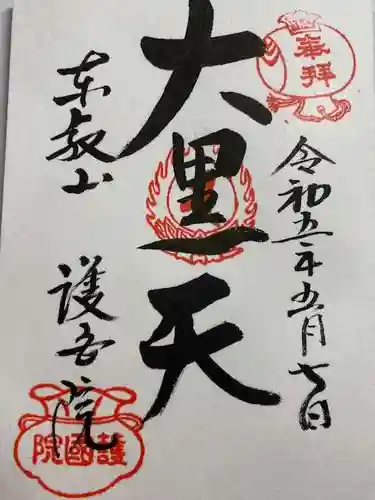 奉拝
令和五年五月七日
大黒天
東叡山
護国院
護國院